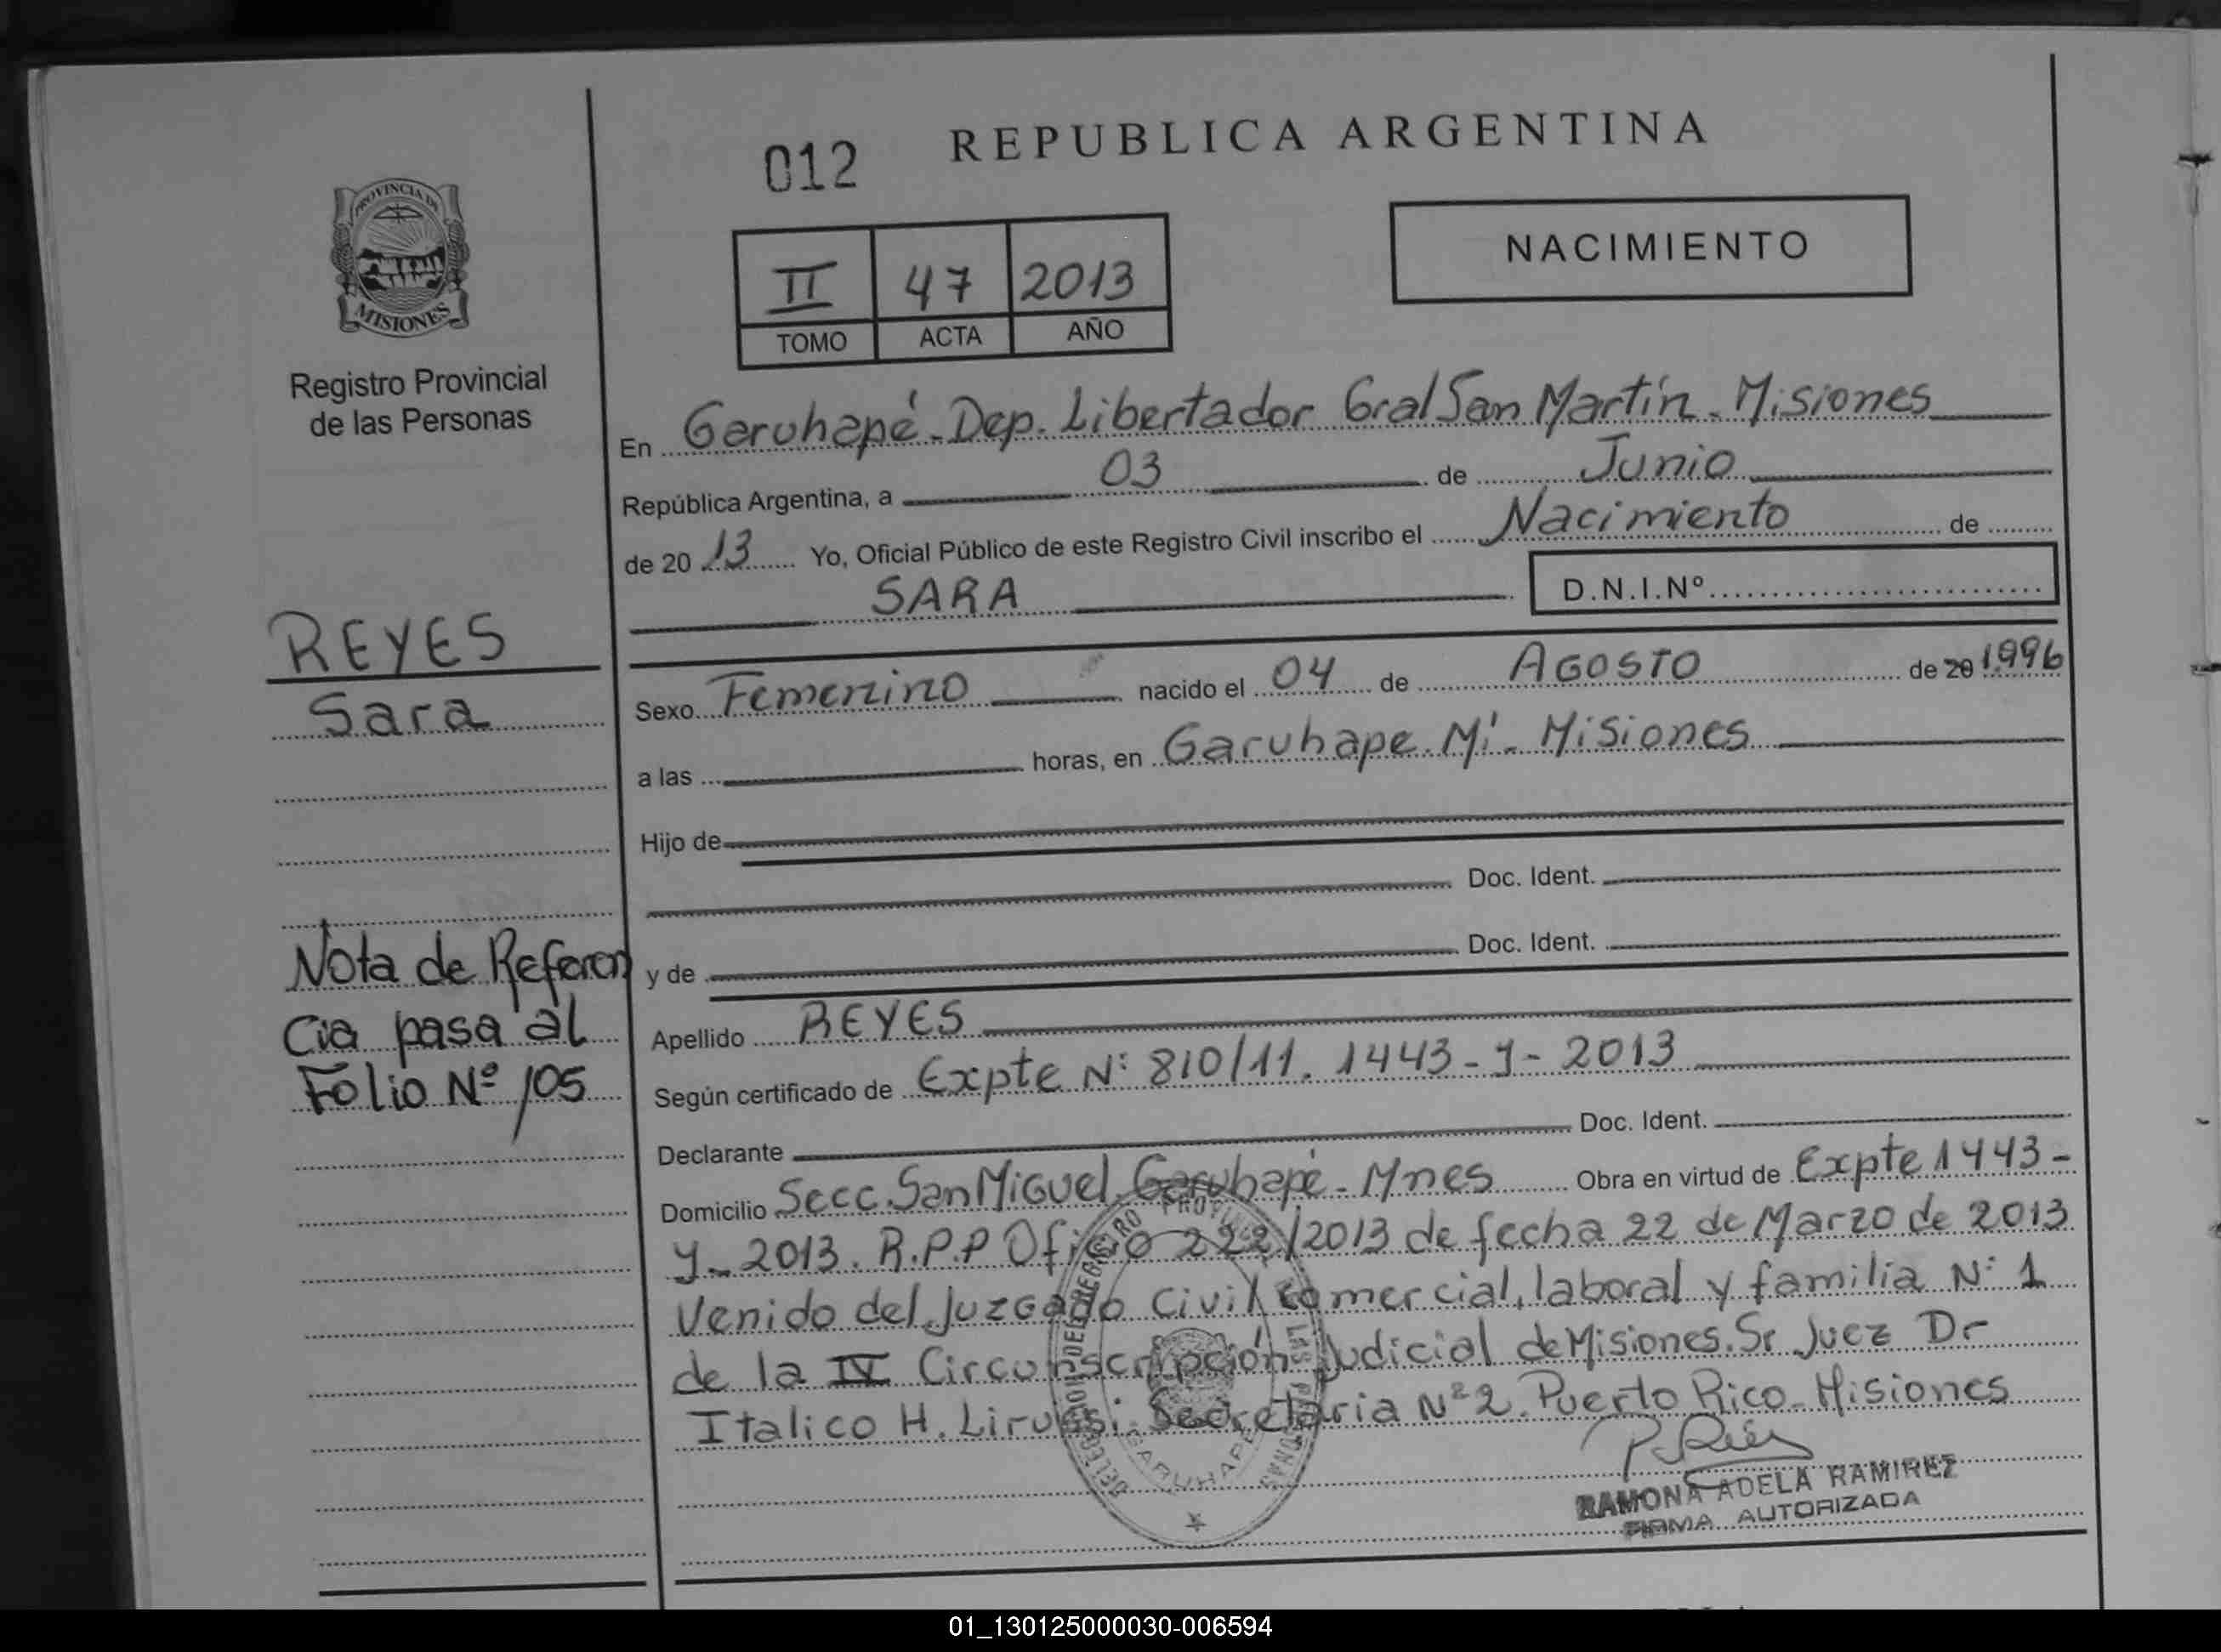 012
REPUBLICA ARGENTINA
PROVINCIA DE
MISIONES
Registro Provincial
de las Personas
II 47 2013
TOMO ACTA AÑO
NACIMIENTO
En Garuhapé - Dep. Libertador Gral San Martín - Misiones
República Argentina, a 03 de Junio
de 20 13 Yo, Oficial Público de este Registro Civil inscribo el Nacimiento de
SARA D.N.I.Nº
REYES
Sara
Sexo Femenino nacido el 04 de AGOSTO de 20 1996
a las horas, en Garuhape. Mí - Misiones
Hijo de
Doc. Ident.
y de Doc. Ident.
Nota de Referen
cia pasa al
Folio Nº 105
Apellido REYES
Según certificado de Expte Nº 810/11. 1443 - Y - 2013
Declarante Doc. Ident.
Domicilio Secc. San Miguel. Garuhapé - Mnes Obra en virtud de Expte 1443 -
Y - 2013. R.P.P Oficio 222/2013 de fecha 22 de Marzo de 2013
Venido del Juzgado Civil comercial, laboral y familia Nº 1
de la IV Circunscripción Judicial de Misiones. Sr Juez Dr
Italico H. Lirussi. Secretaria Nº 2. Puerto Rico - Misiones
DELEGACION DEL REGISTRO PROVINCIAL DE LAS PERSONAS
GARUHAPE
RAMONA ADELA RAMIREZ
FIRMA AUTORIZADA
01_130125000030-006594